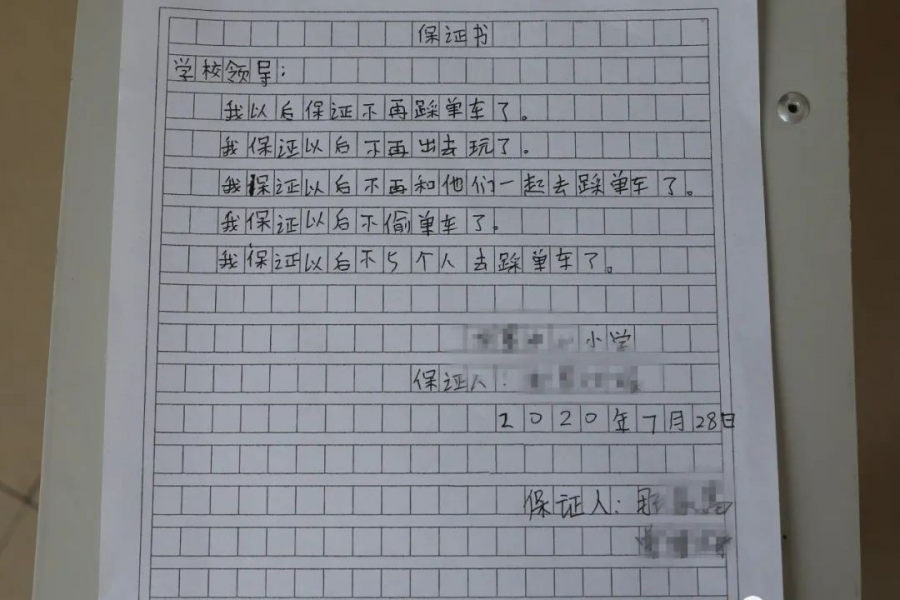 保证书
学校领导：
我以后保证不再踩单车了。
我保证以后不再出去玩了。
我保证以后不再和他们一起去踩单车了。
我保证以后不偷单车了。
我保证以后不5个人去踩单车了。
小学
保证人：
2020年7月28日
保证人：